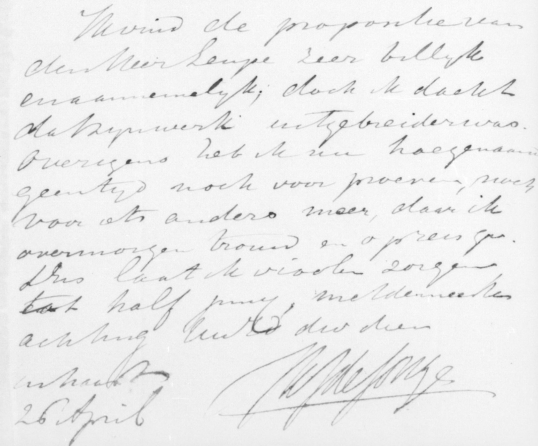 Ik vind de propositie van
den Heer Leupe zeer billijk
en aannemelijk; doch ik dacht
dat zijn werk uitgebreider was.
Overigens heb ik nu hoegenaamd
geen tijd noch voor proeven, noch
voor iets anders meer, daar ik
overmorgen trouw en op reis ga.
Dus laat ik violen zorgen,
tot half juny, met de meeste
achting UwEd dw dien
in haast
26 April
de Jonge